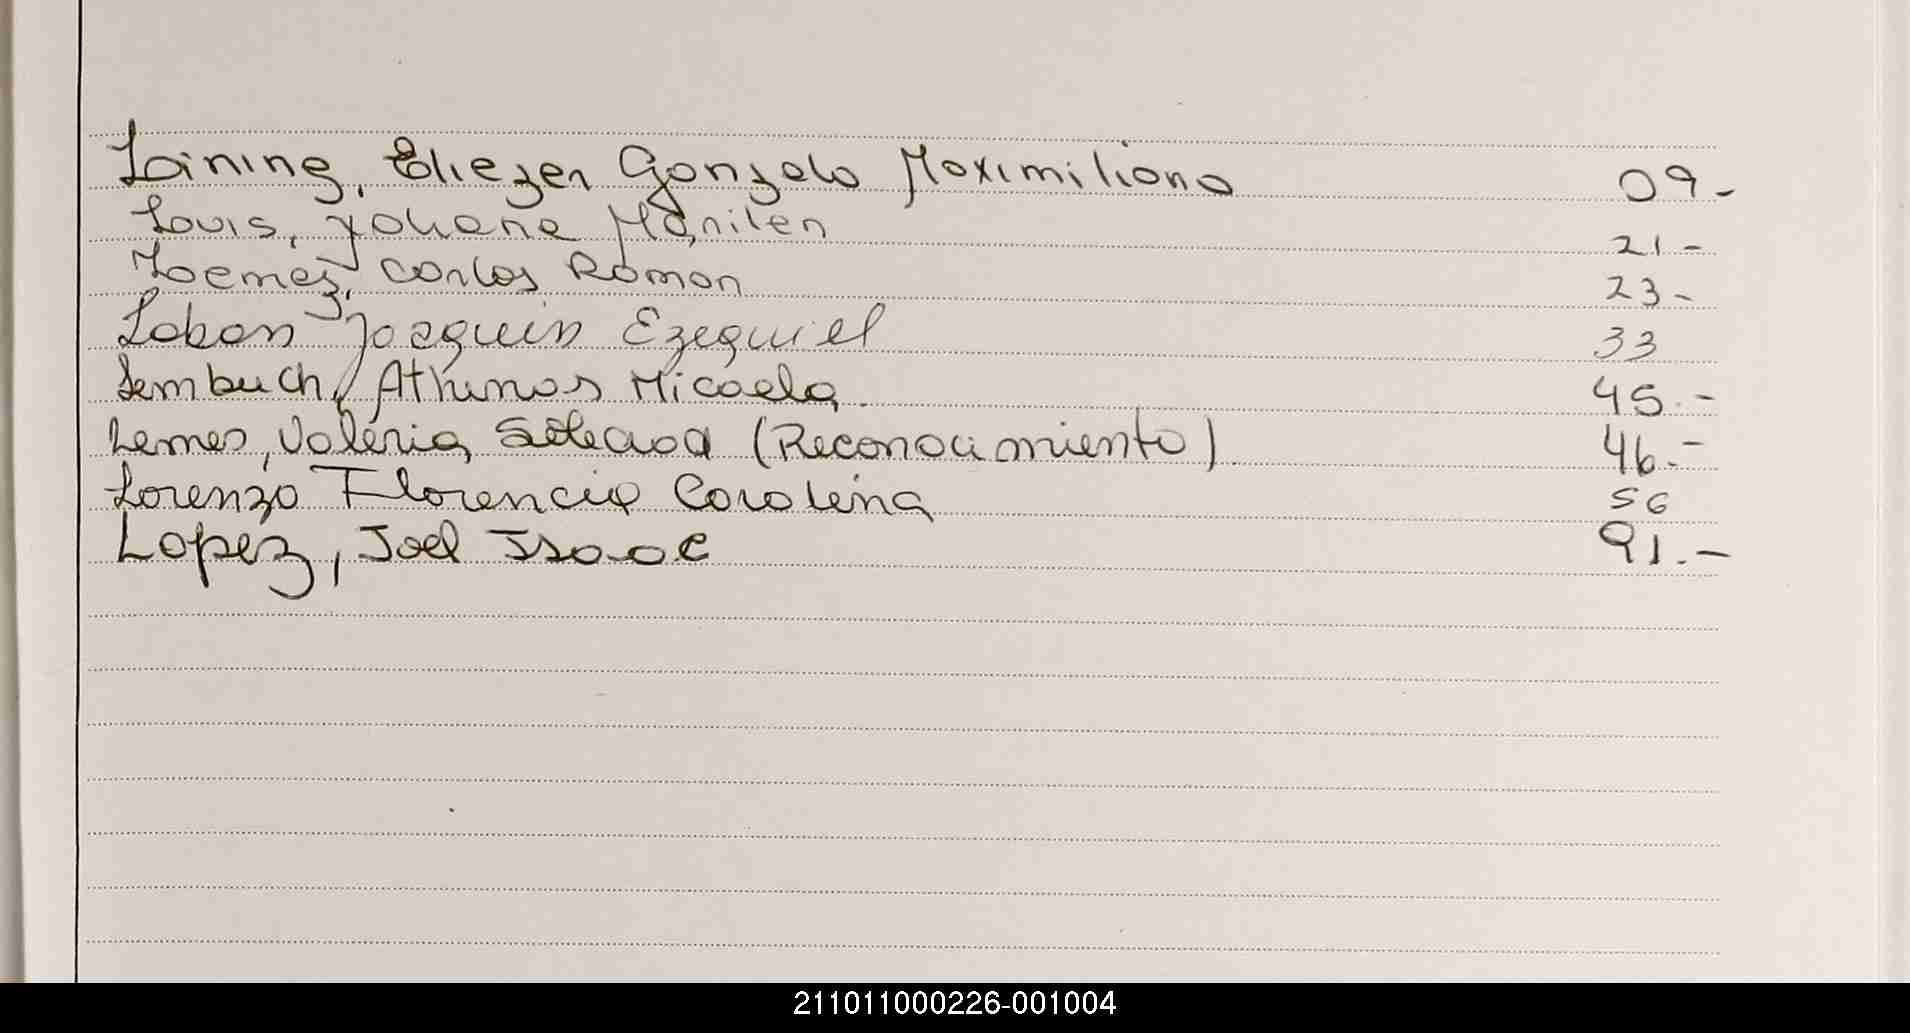 Laining, Eliezer Gonzalo Maximiliano 09-
Louis, Yohana Marilen 21-
Carlos Roman 23-
Joaquin Ezequiel 33
Lembuch, Athinas Micaela 45.-
Lemes, Valeria Soledad (Reconocimiento) 46.-
Lorenzo Florencia Carolina 56
Lopez, Joel Isaac 91.-
211011000226-001004